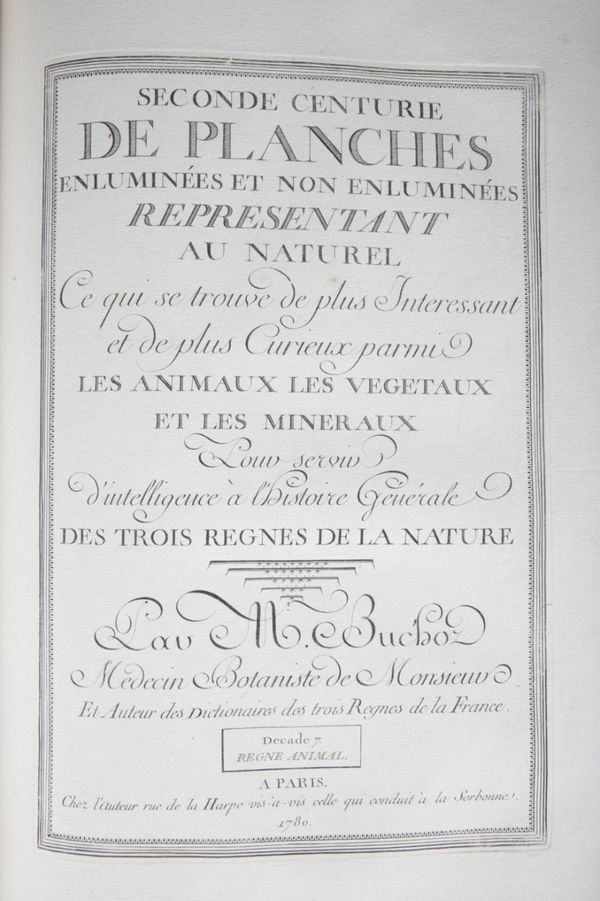 SECONDE CENTURIE
DE PLANCHES
ENLUMINÉES ET NON ENLUMINÉES
REPRESENTANT
AU NATUREL
Ce qui se trouve de plus Interessant
et de plus Curieux parmi
LES ANIMAUX LES VEGETAUX
ET LES MINERAUX
Pour servir
d'intelligence à l'histoire Générale
DES TROIS REGNES DE LA NATURE
Par M. Buchoz
Médecin Botaniste de Monsieur
Et Auteur des Dictionaires des trois Regnes de la France.
Decade 7.
REGNE ANIMAL.
A PARIS.
Chez l'auteur rue de la Harpe vis-à-vis celle qui conduit à la Sorbonne.
1780.